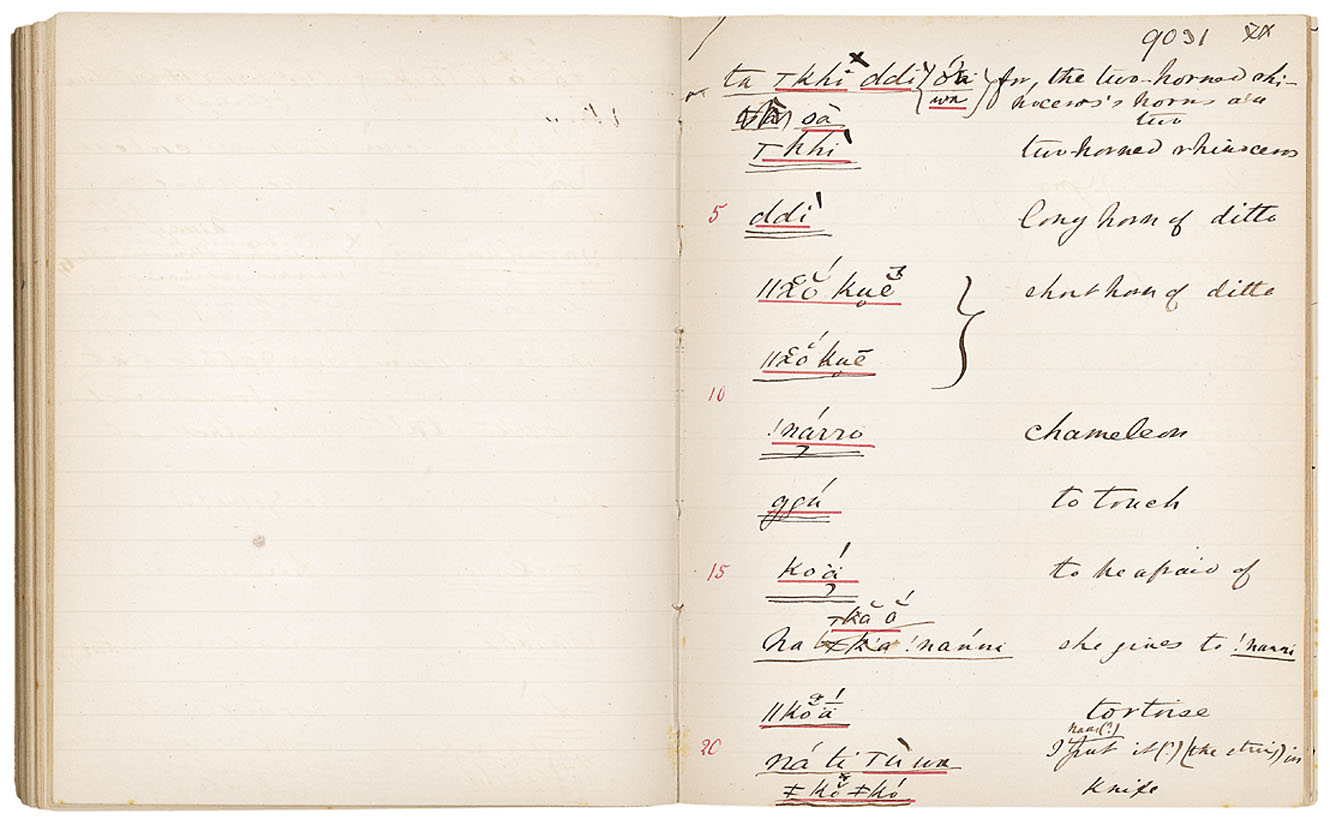 9031
ta Ʇkhi ddi {óä / wa} for, the two-horned rhi-
sà noceros's horns are
two
Ʇkhi two-horned rhinoceros
5 ddi long horn of ditto
ǁxŏ́ kuē̆ } short horn of ditto
ǁxó kuē
10
!nárro chameleon
ggú to touch
15 koá to be afraid of
Ʇkă ŏ́
ha !nańni she gives to !nanni
ǁkŏá tortoise
have(?)
20 ná ti Ʇùwa I put it(?) (the string) in
ǂkŏ ǂkó knife